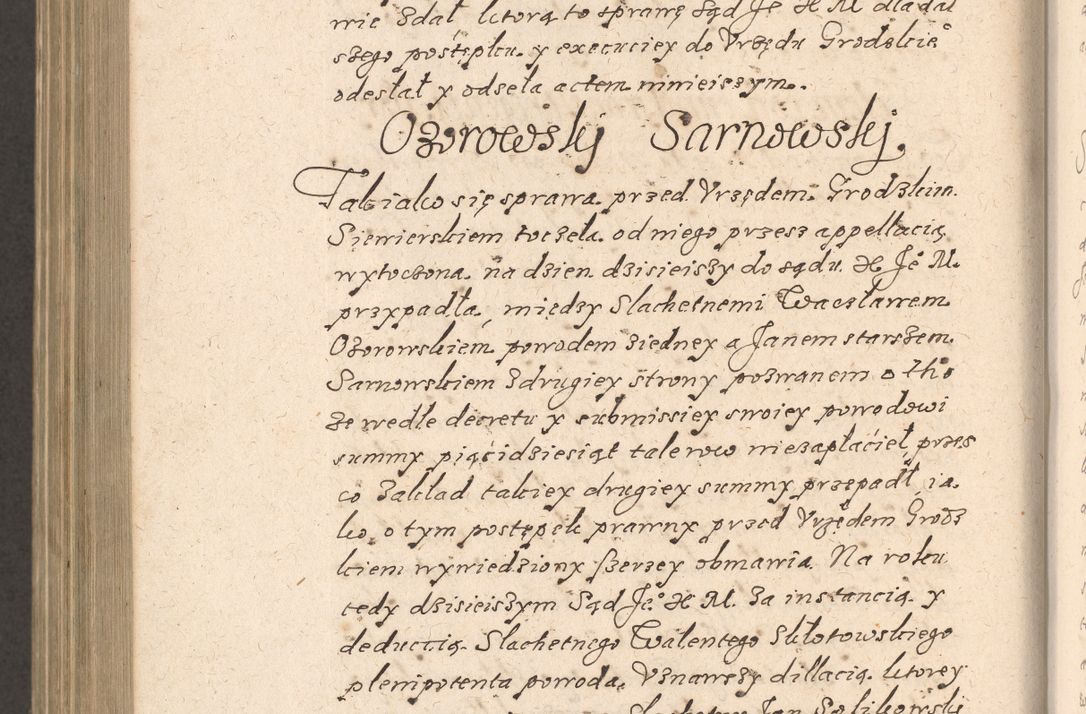 wie zdał ktorą to sprawę Sąd Je° X M. dla dal
szego postępku y execuciey do Vrzędu Grodzkie°
odesłał y odseła actem ninieiszym.
Ożorowski Sarnowski.
Tak iako się sprawa przed Vrzędem Grodzkim
Siewierskiem toczeła od niego przesz appellacią
wytoczona na dzien dzisieiszy do sądu X Je° M.
przypadła, między Slachetnemi Wacsławem
Ożorowskiem powodem ziedney a Janem starszem
Sarnowskiem z drugiey strony pozwanem o tho
że wedle decretu y submissiey swoiey powodowi
summy pięćidziesiąt talerow niezapłacieł, przes
co zakład takiey drugiey summy przepadł, ia
ko o tym postępek prawny przed Vrzędem Grodz
kiem wywiedziony szerzey obmawia. Na roku
tedy dzisieiszym Sąd Je° X M. za instancią y
deductią Slachetnego Walentego Skłotowskiego
plenipotenta powoda. Vznawszy dillacią ktorey
Slachetny Jan